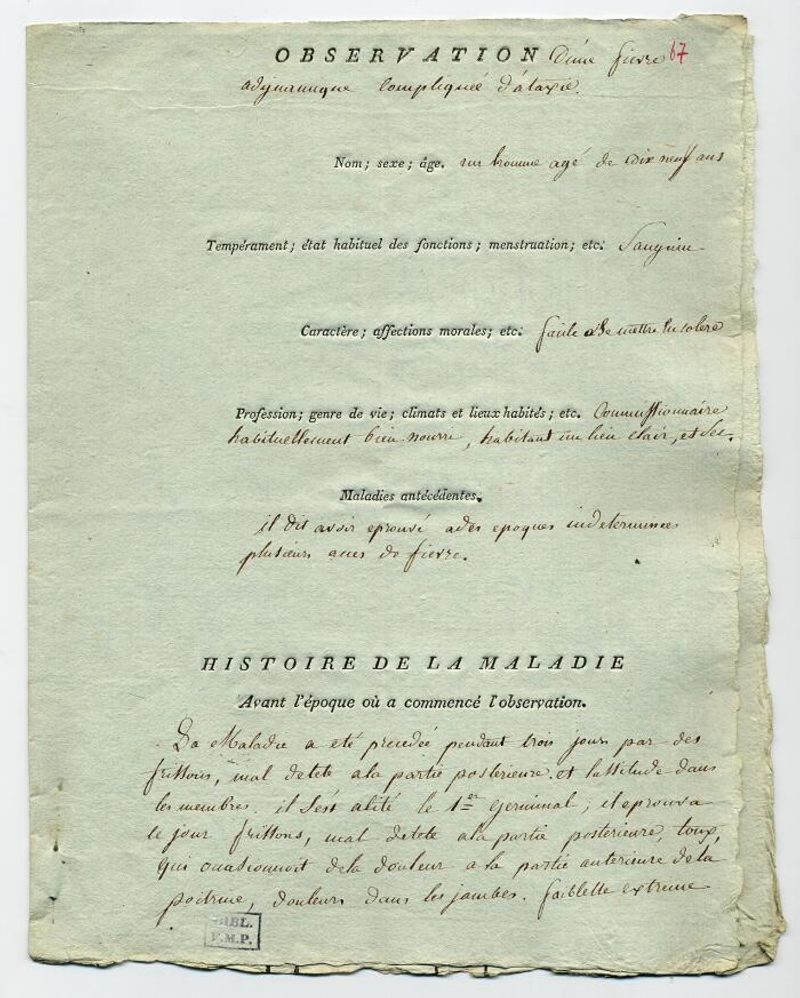 OBSERVATION d'une fievre 67
adynamique compliquée d'ataxie.
Nom; sexe; âge. un homme agé de dix neuf ans
Tempérament; état habituel des fonctions; menstruation; etc. Sanguin
Caractère; affections morales; etc. facile a se mettre en colere
Profession; genre de vie; climats et lieux habités; etc. Commissionnaire
habituellement bien nourri, habitant un lieu clair, et sec.
Maladies antécédentes.
il dit avoir eprouvé a des epoques indeterminées
plusieurs acces de fievre.
HISTOIRE DE LA MALADIE
Avant l'époque où a commencé l'observation.
La Maladie a eté precedée pendant trois jours par des
frissons, mal de tete a la partie posterieure et lassitude dans
les membres. il s'est alité le 1er germinal; il eprouva
ce jour frissons, mal de tete a la partie posterieure, toux,
qui occasionnoit de la douleur a la partie anterieure de la
poitrine, douleurs dans les jambes. faiblesse extreme
BIBL.
F.M.P.